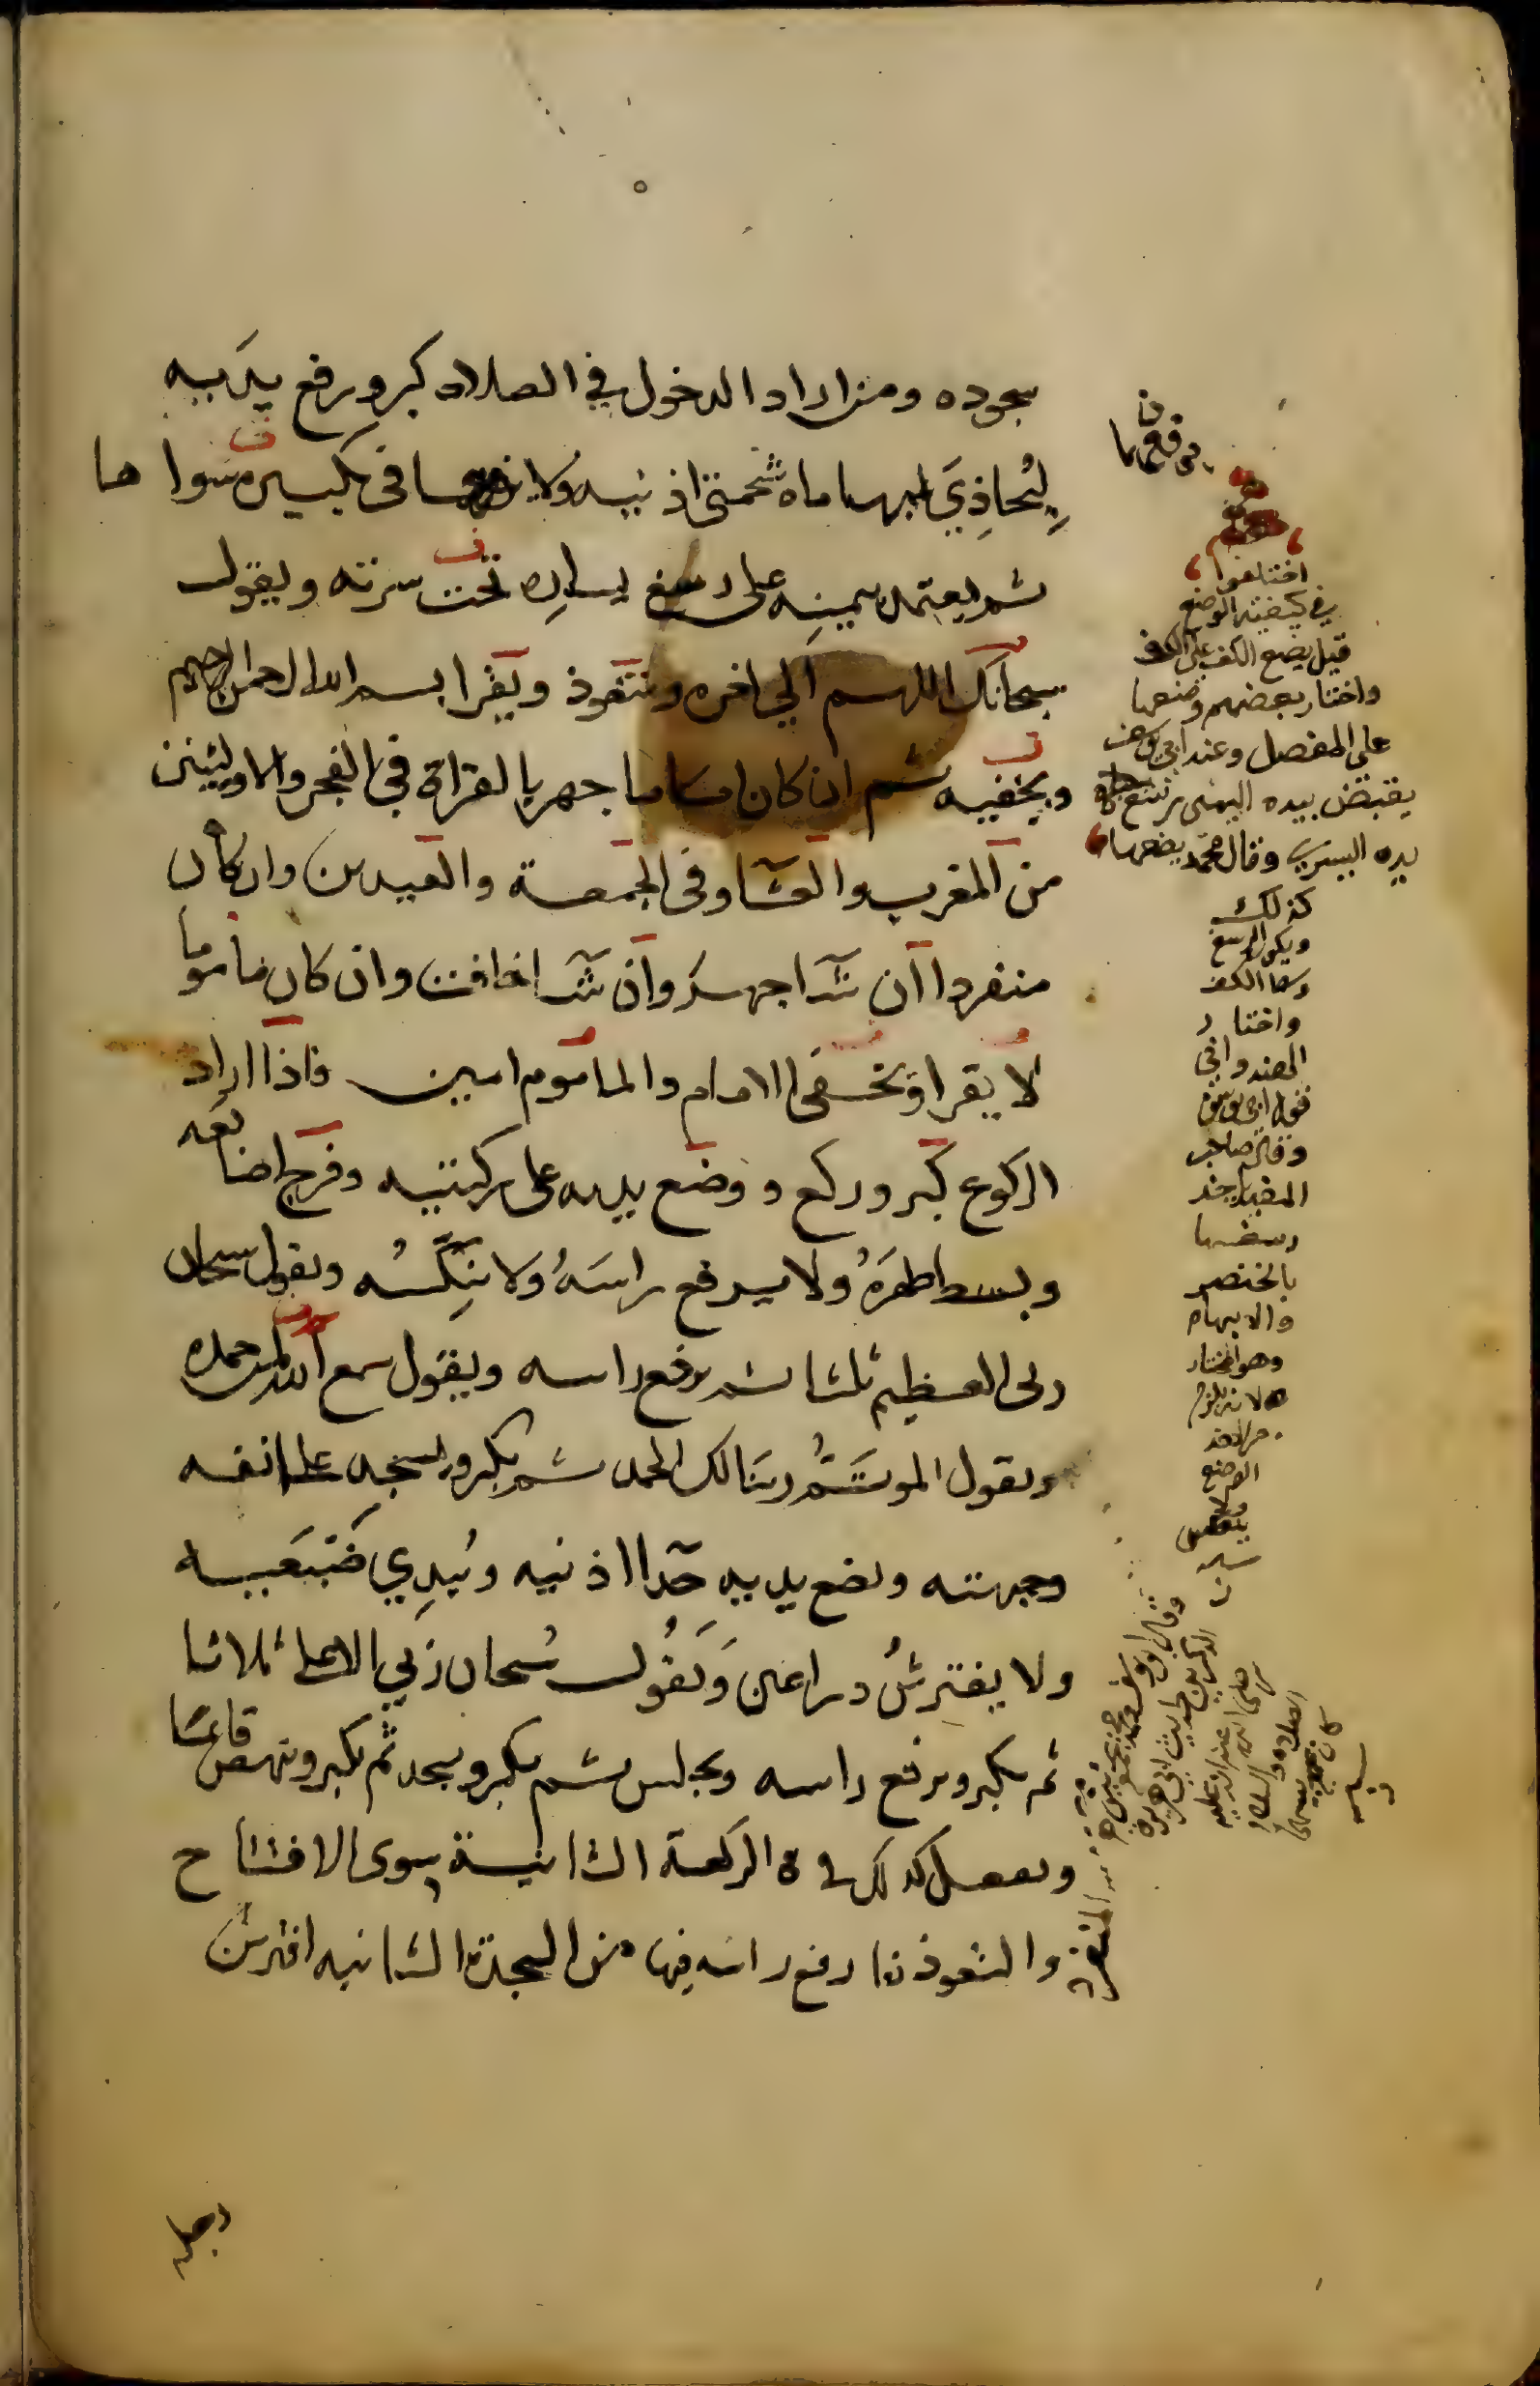 سجوده ومن اراد الدخول في الصلاه كبر ورفع يديه
ليُحاذِيَ ابهاماه شحمتي اذنيه ولا يرفعهما في تكبيره سواها
ثم يعتمد بيمينِه على رسغ يسارِه تحت سرته ويقول
سبحانك اللهم الي اخره ويتعوذ ويقرا بسم الله الرحمن الرحيم
ويخفيه ثم ان كان اماما جهر بالقراة في الفجر والاوليين
من المغرب والعشا وفي الجمعة والعيدين وان كان
منفردا ان شا جهر وان شا خافت وان كان ماموما
لا يقرا ويخفي الامام والماموم امين فاذا اراد
الركوع كبر وركع و وضع يديه على ركبتيه وفرج اصابعه
وبسط ظهرَهُ ولا يرفع راسَهُ ولا ينكِّسُه ويقول سبحان
ربي العظيم ثلثا ثم يرفع راسه ويقول سمع الله لمن حمده
ويقول الموتمُّ ربنا لك الحمد ثم يكبر ويسجد على انفه
وجبهته ويضع يديه حذا اذنيه ويُبدِي ضَبعَيه
ولا يفترِشُ دراعين وَيَقُول سُبحان رَبي الاعلى ثلاثا
ثم يكبر ويرفع راسه ويجلس ثم يكبر ويسجد ثم يكبر وينهض قائمًا
ويفعل كذلك في الركعة الثانية سوى الافتتاح
والتعوذ فاذا رفع راسه فيها من السجدة الثانيه افترش
يرفعهما
اختلفوا
في كيفيته الوضع
قيل يضع الكف على الكف
واختار بعضهم وضعها
على المفصل وعند ابي يوسف
يقبض بيده اليمنى رسغ
يده اليسرى وقال محمد يضعها
كذلك
ويكون الرسغ
وسط الكف
واختار
الهندواني
قول ابي يوسف
وقال صاحب
المفيد ياخذ
رسغها
بالخنصر
والابهام
وهو المختار
لانه يلزم
من الاخذ
الوضع
ولا
ينعكس
وقال ابو يوسف ومحمد يجمع بين
الذكرين لحديث ابي هريره